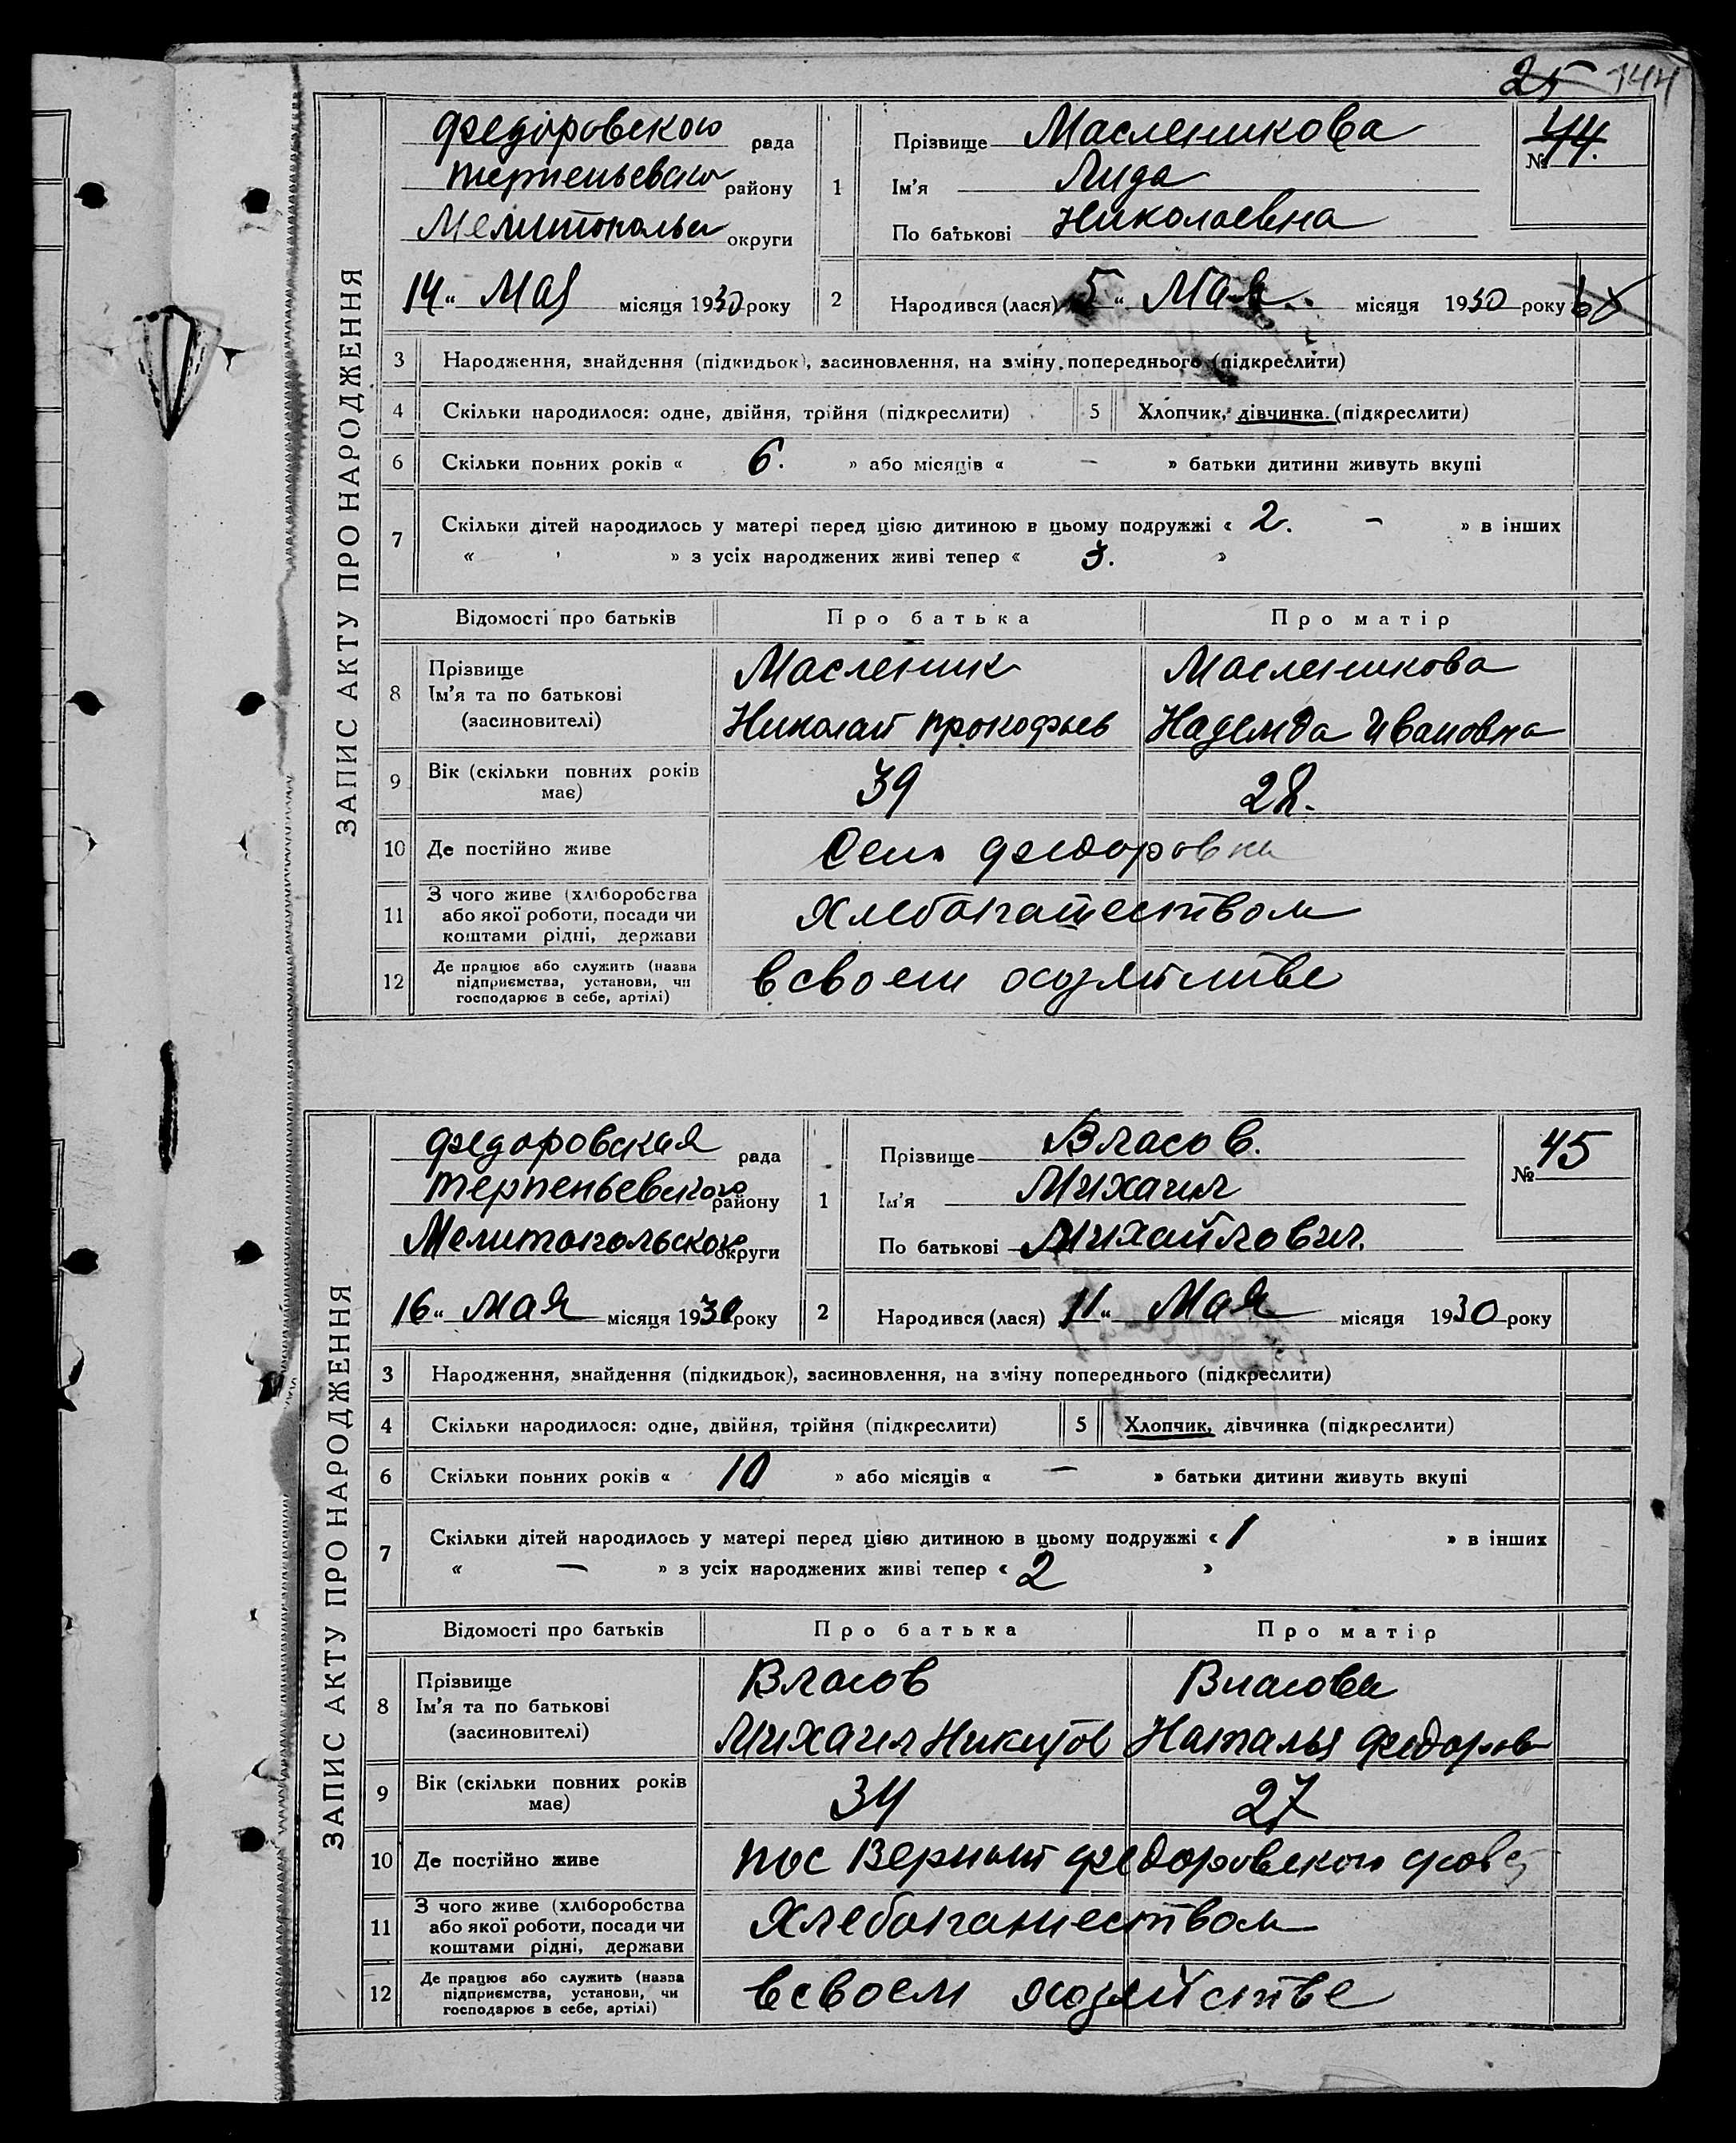 25 144
Федоровского рада
Терпеньевского району
Мелитополь округи
14 „ Мая місяця 1930 року
1 Прізвище Масленикова
Ім'я Лида
По батькові Николаевна
№ 44.
2 Народився (лася) 5 „ Мая місяця 1930 року
ЗАПИС АКТУ ПРО НАРОДЖЕННЯ
3 Народження, знайдення (підкидьок), засиновлення, на зміну попереднього (підкреслити)
4 Скільки народилося: одне, двійня, трійня (підкреслити) 5 Хлопчик, дівчинка (підкреслити)
6 Скільки повних років « 6. » або місяців « – » батьки дитини живуть вкупі
7 Скільки дітей народилось у матері перед цією дитиною в цьому подружжі « 2. – » в інших
« » з усіх народжених живі тепер « 3. »
Відомості про батьків Про батька Про матір
8 Прізвище
Ім'я та по батькові
(засиновителі)
Масленик
Николай Прокофьев
Масленикова
Надежда Ивановна
9 Вік (скільки повних років
має) 39 28.
10 Де постійно живе Село Федоровка
11 З чого живе (хліборобства
або якої роботи, посади чи
коштами рідні, держави
Хлебопашеством
12 Де працює або служить (назва
підприємства, установи, чи
господарює в себе, артілі)
в своем хозяйстве
Федоровская рада
Терпеньевского району
Мелитопольского округи
16 „ Мая місяця 1930 року
1 Прізвище Власов.
Ім'я Михаил
По батькові Михайлович.
№ 45
2 Народився (лася) 11 „ Мая місяця 1930 року
ЗАПИС АКТУ ПРО НАРОДЖЕННЯ
3 Народження, знайдення (підкидьок), засиновлення, на зміну попереднього (підкреслити)
4 Скільки народилося: одне, двійня, трійня (підкреслити) 5 Хлопчик, дівчинка (підкреслити)
6 Скільки повних років « 10 » або місяців « – » батьки дитини живуть вкупі
7 Скільки дітей народилось у матері перед цією дитиною в цьому подружжі « 1 » в інших
« – » з усіх народжених живі тепер « 2 »
Відомості про батьків Про батька Про матір
8 Прізвище
Ім'я та по батькові
(засиновителі)
Власов
Михаил Никитов
Власова
Наталья Федоров
9 Вік (скільки повних років
має) 34 27
10 Де постійно живе пос Федоровского
11 З чого живе (хліборобства
або якої роботи, посади чи
коштами рідні, держави
Хлебопашеством
12 Де працює або служить (назва
підприємства, установи, чи
господарює в себе, артілі)
в своем хозяйстве